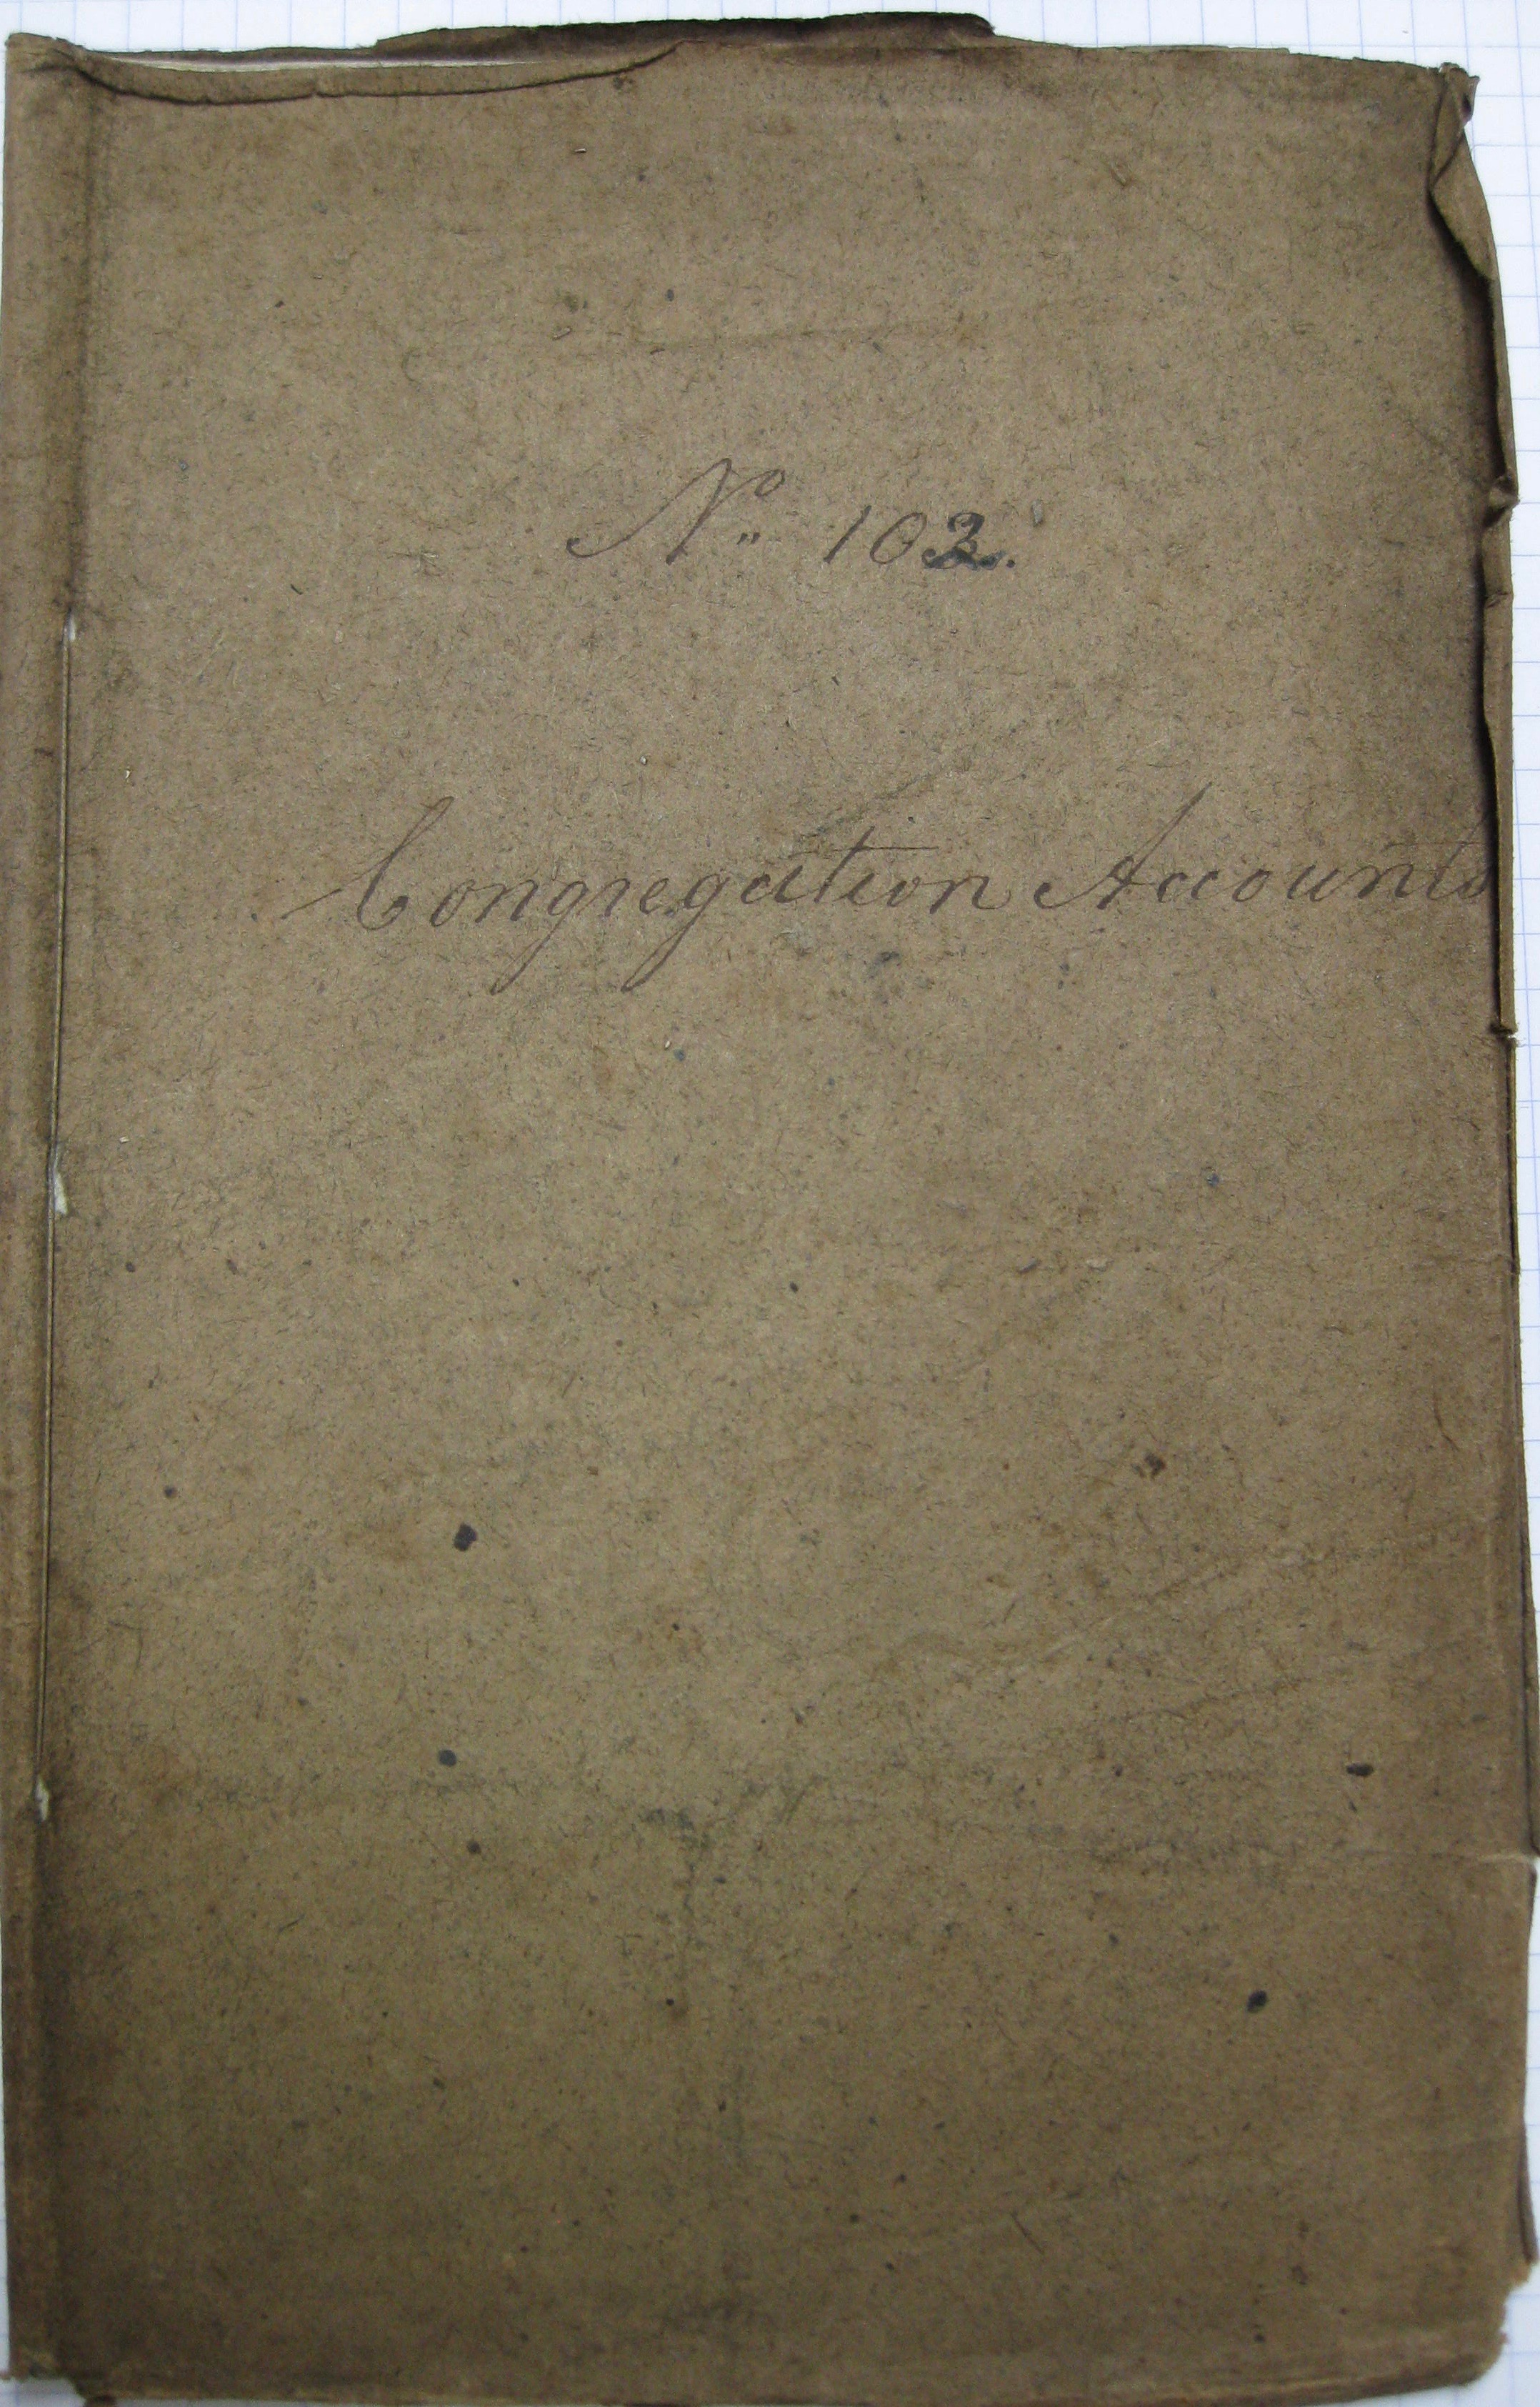 No 102.
Congregation Accounts